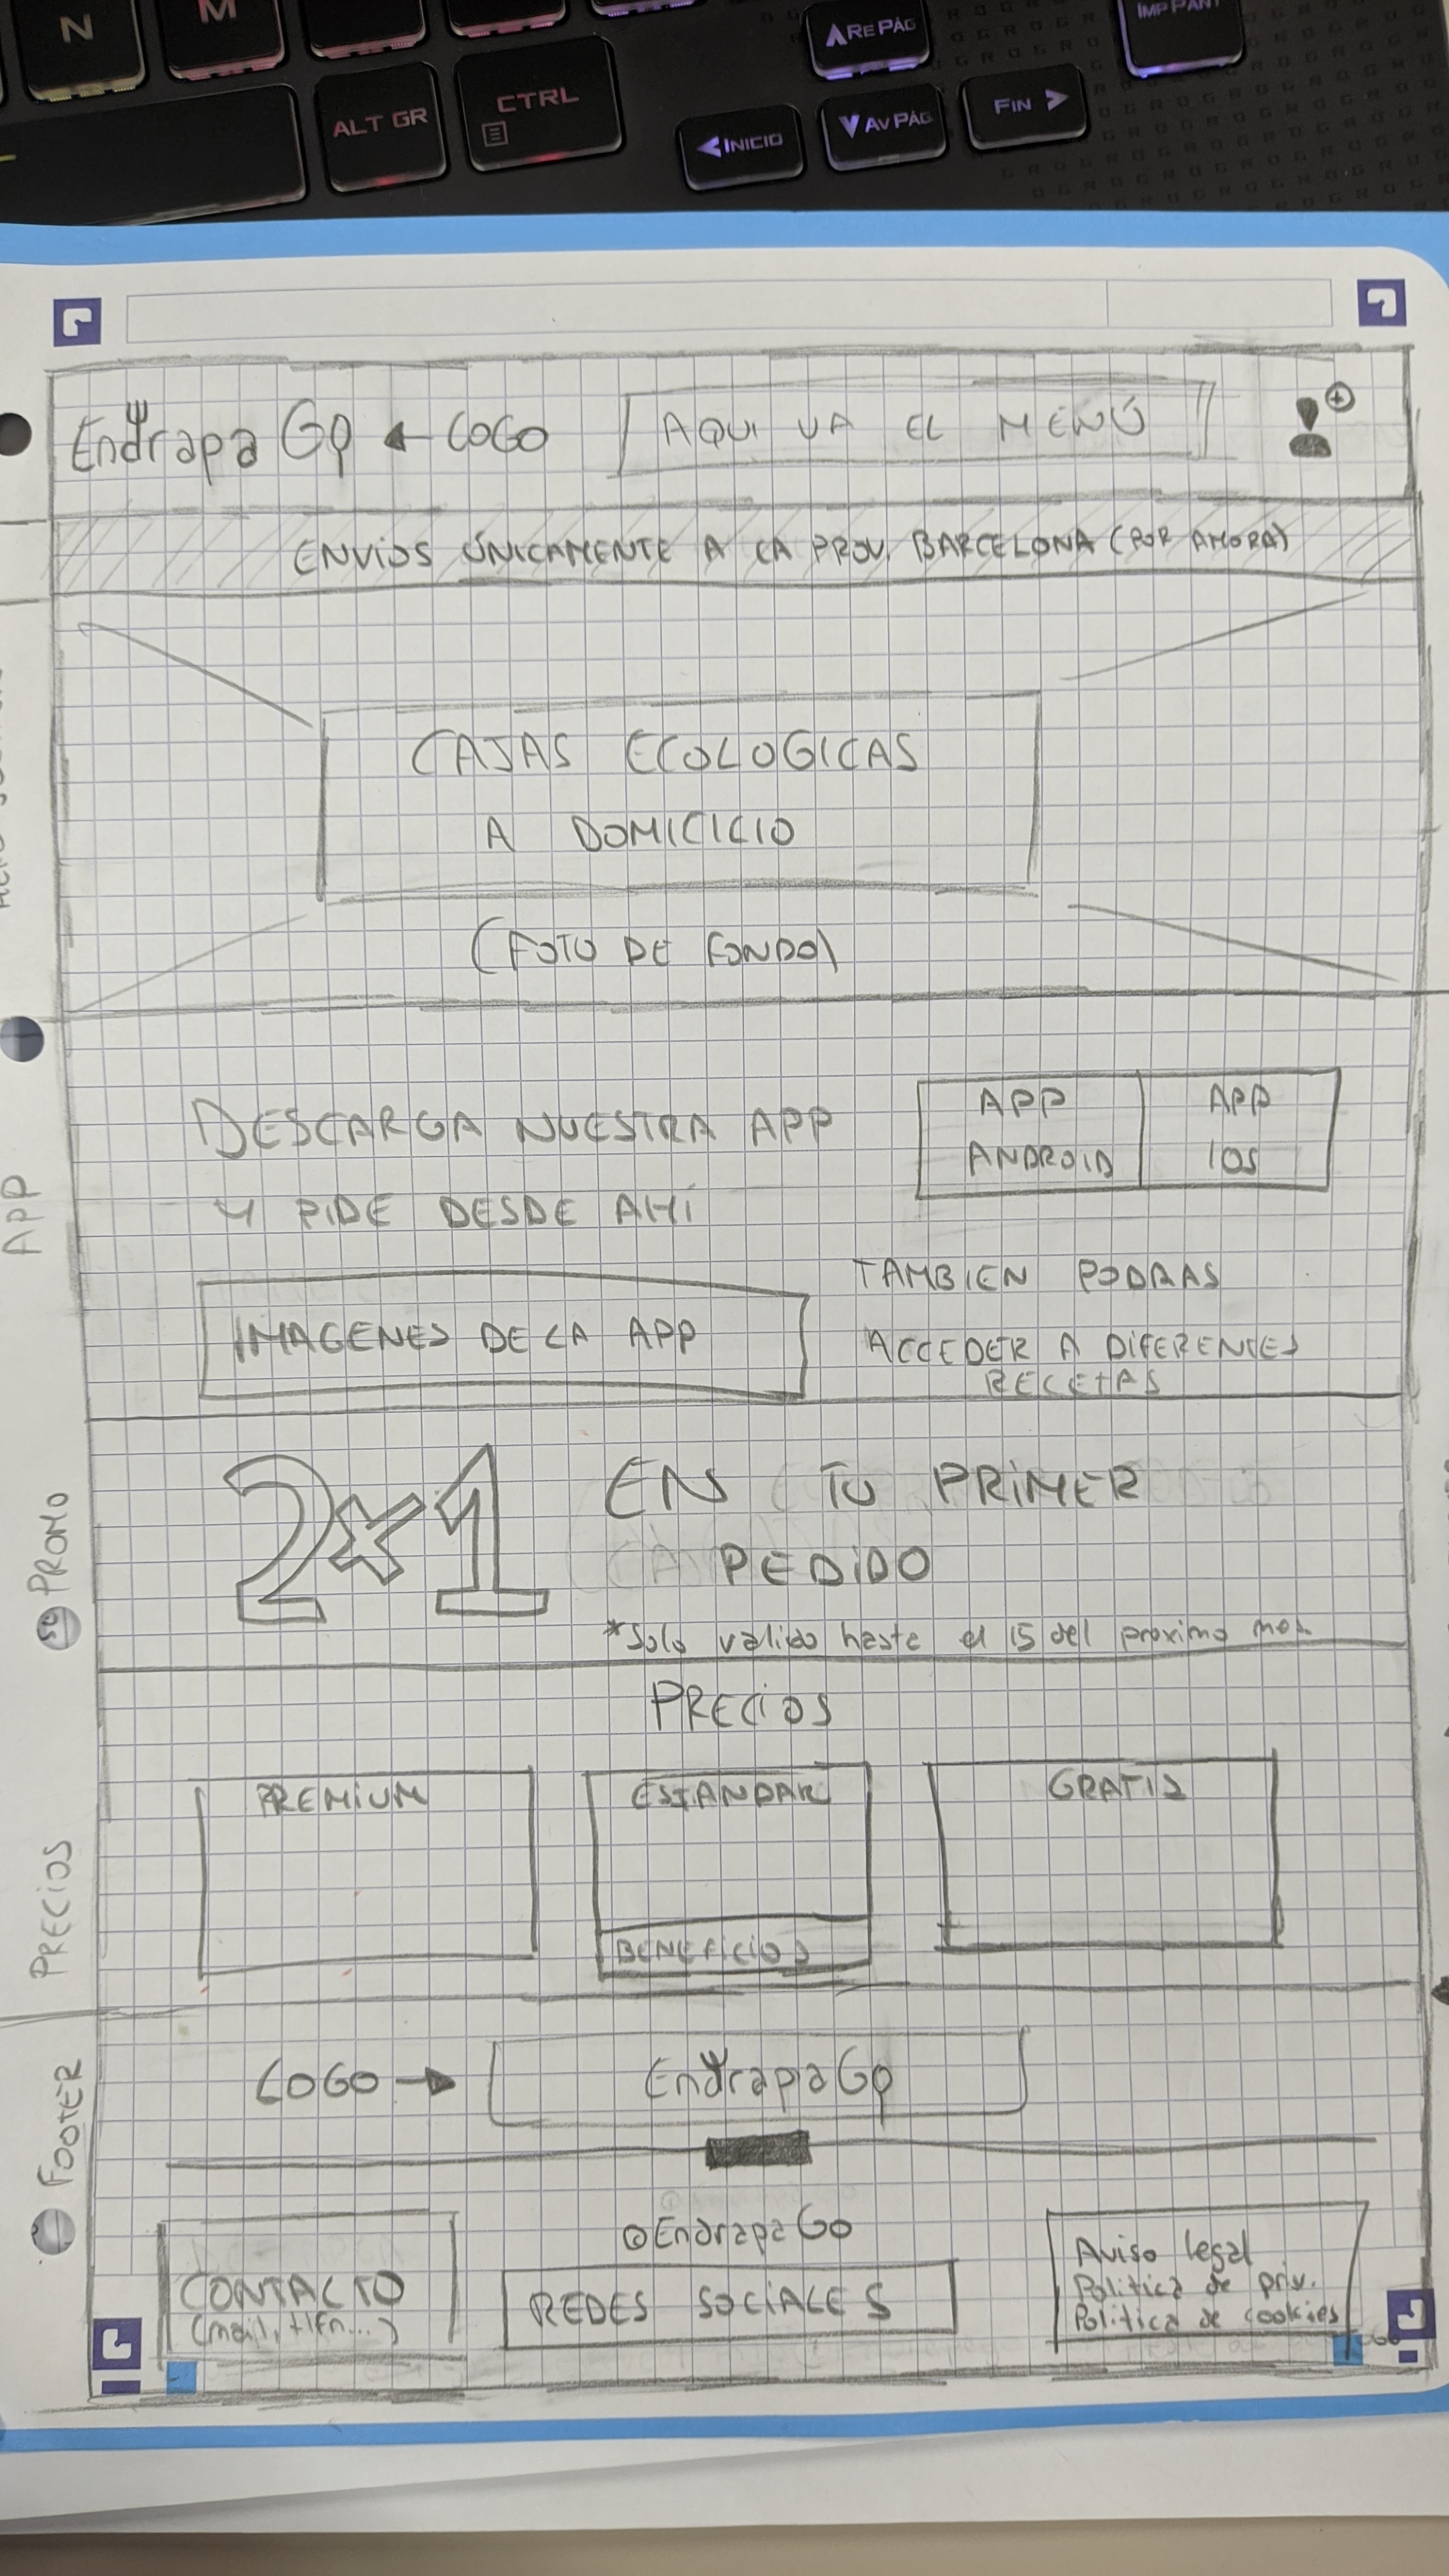 N
M
ALT GR
CTRL
RE PÁG
IMP PANT
INICIO
AV PÁG
FIN
EndrapaGo ← LOGO
AQUI VA EL MENÚ
ENVIOS ÚNICAMENTE A LA PROV. BARCELONA (POR AHORA)
CAJAS ECOLOGICAS
A DOMICILIO
(FOTO DE FONDO)
APP
DESCARGA NUESTRA APP
Y PIDE DESDE AHÍ
APP
ANDROID
APP
IOS
IMAGENES DE LA APP
TAMBIEN PODRAS
ACCEDER A DIFERENTES
RECETAS
PROMO
2x1
EN TU PRIMER
PEDIDO
*Solo valido hasta el 15 del proximo mes
PRECIOS
PRECIOS
PREMIUM
ESTANDAR
BENEFICIOS
GRATIS
FOOTER
LOGO →
EndrapaGo
@EndrapaGo
CONTACTO
(mail, tlfn...)
REDES SOCIALES
Aviso legal
Politica de priv.
Politica de cookies